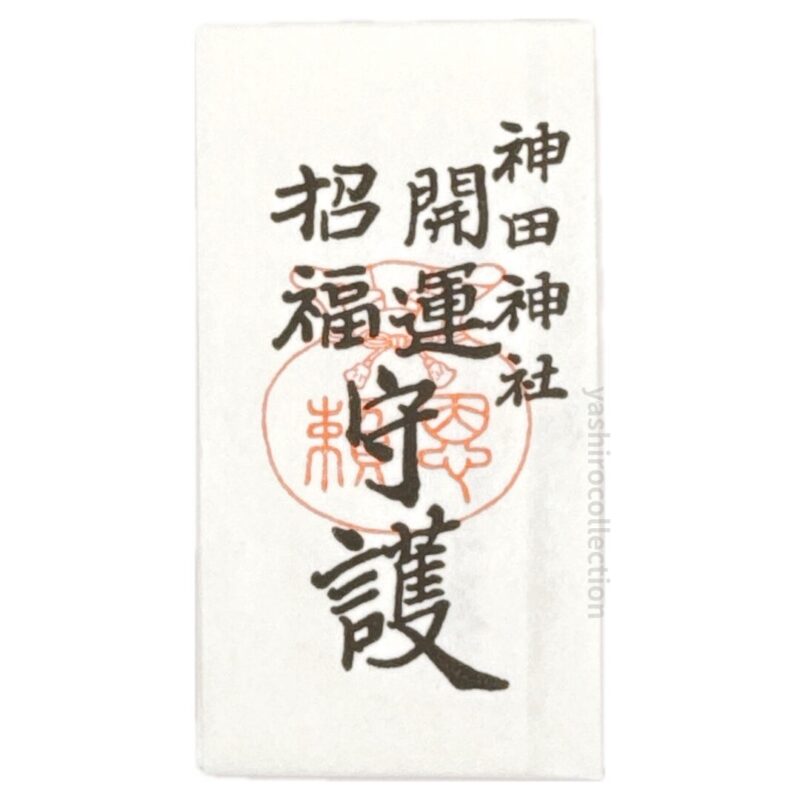 神田神社
開運
招福
守護
恩頼
yashirocollection